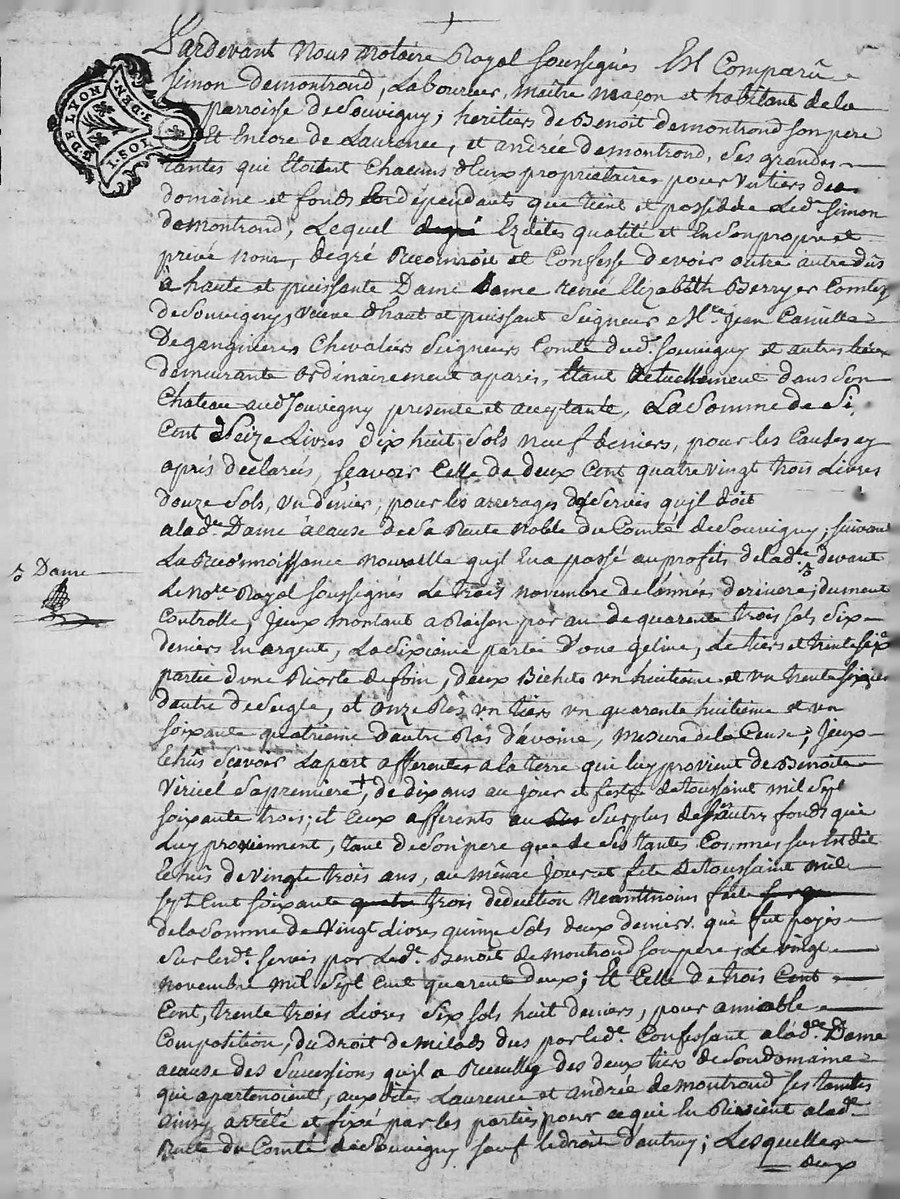 G. DE LYON
3. DEN.
1. SOL
Pardevant Nous Notaire Royal soussignés Est Comparû
Simon Demontrond, Laboureur, maître maçon et habitant de la
parroisse de Souvigny; heritier de Benoit demontrond son pere
Et Encore de Laurence, et andrée demontrond, ses grandes
tantes qui Etoient Chacune d'Eux proprietaires pour un tiers des
domaine et fonds en dépendants que tient et possede Led. simon
demontrond, Lequel Ezdites qualité et En son propre et
privé nom, de gré Reconnoit et Confesse devoir outre autre dus
à haute et puissante Dame Dame Renée Elizabeth Berryer Comtesse
de Souvigny, veuve d'haut et puissant Seigneur Mre. Jean Camille
De ganginieres Chevaliers Seigneurs Comte dud. Souvigny et autres lieux
demeurante ordinairement a paris, Etant actuellement dans son
Chateau aud. Souvigny presente et acceptante, La Somme de Si
Cent Seize Livres dix huit Sols neuf deniers, pour les Causes cy
après declarés, sçavoir Celle de deux Cent quatre vingt trois Livres
douze Sols, un denier, pour les arrerages de Servis qu'jl doit
a lade. Dame à cause de sa Rente Noble du Comté de Souvigny, suivant
La Reconnoissance nouvelle qujl En a passé au profits de lade. devant
Dame
Le Nore. Royal soussignés Le trois novembre de l'année derniere, dument
Controllé, Jeux montant a Raison par an de quarente trois sols Six
deniers En argent, La Sixieme partie d'une geline, Le tiers et trente Six
partie d'une Riorte de foin, deux Bichets un huitieme et un trente sixieme
d'autre de seigle, et onze Ras un tiers un quarente huitieme et un
soixante quatrieme d'autre Ras d'avoine, mesure de la Cense; Jeux
Echus sçavoir La part afferentes a la terre qui luy provient de Benoite
Vericel Sa premiere, de dix ans au jour et feste de Toussaint mil Sept
soixante trois; et Ceux afferents au Surplus des autres fonds qui
Luy proviennent, tant de Son pere que de ses tantes Commes sus Est dit
Echus de vingte trois ans, au même Jour et fete de Toussaint mil
Sept Cent soixante quatre trois deduction Neantmoins faite
de la Somme de Vingt Livres quinze Sols deux deniers. qui fut payés
Sur lesd. servis par Led. Benoit de montrond son pere, Le vingt
novembre mil Sept Cent quarente deux; Et Celle de trois Cent
Cent, trente trois Livres Six Sols huit deniers, pour amiable
Composition, du droit de milods dus par led. Confessant a lade. Dame
a cause des Successions qujl a Recueilly des deux tiers de Son domaine
qui apartenoient, auxdites Laurence et andrée demontrond ses tantes
ainsy arrêté et fixé par les parties pour ce qui En Revient a lade.
Rente du Comté de Souvigny sauf le droit d'autruy; Lesquelles
deux